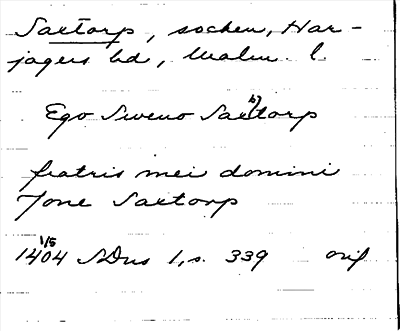 Saxtorp, socken, Har-
jagers hd, Malm. l.
Ego Sweno Saxtorp
fratris mei domini
Jone Saxtorp
1404 1/5 SDns 1, s. 339 orig